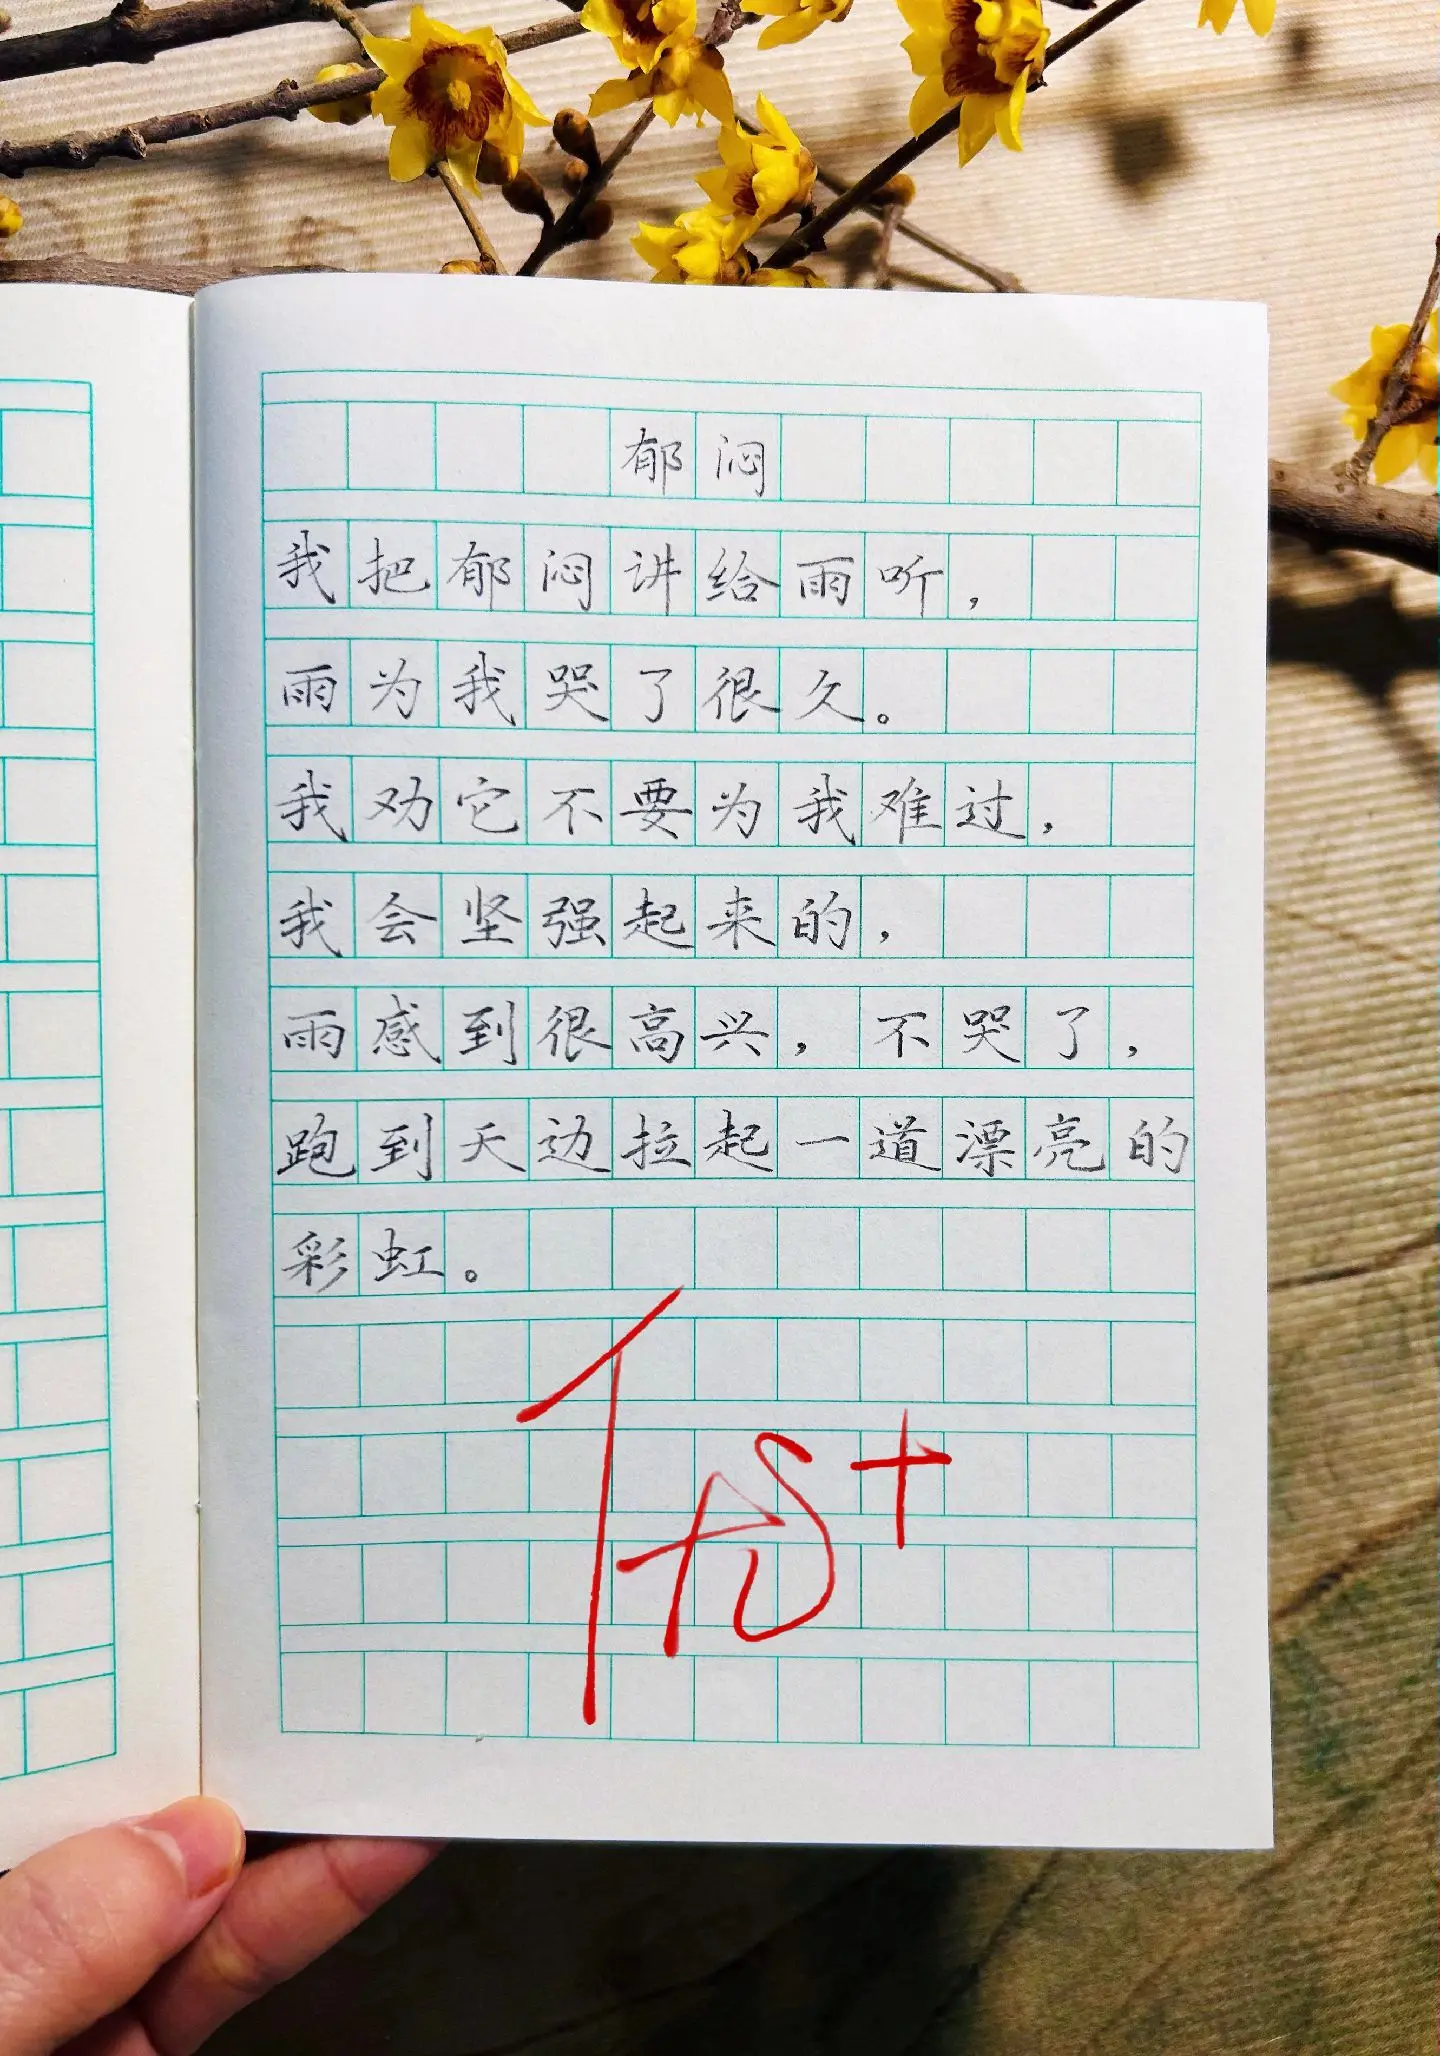 郁闷
我把郁闷讲给雨听，
雨为我哭了很久。
我劝它不要为我难过，
我会坚强起来的，
雨感到很高兴，不哭了，
跑到天边拉起一道漂亮的
彩虹。
优+